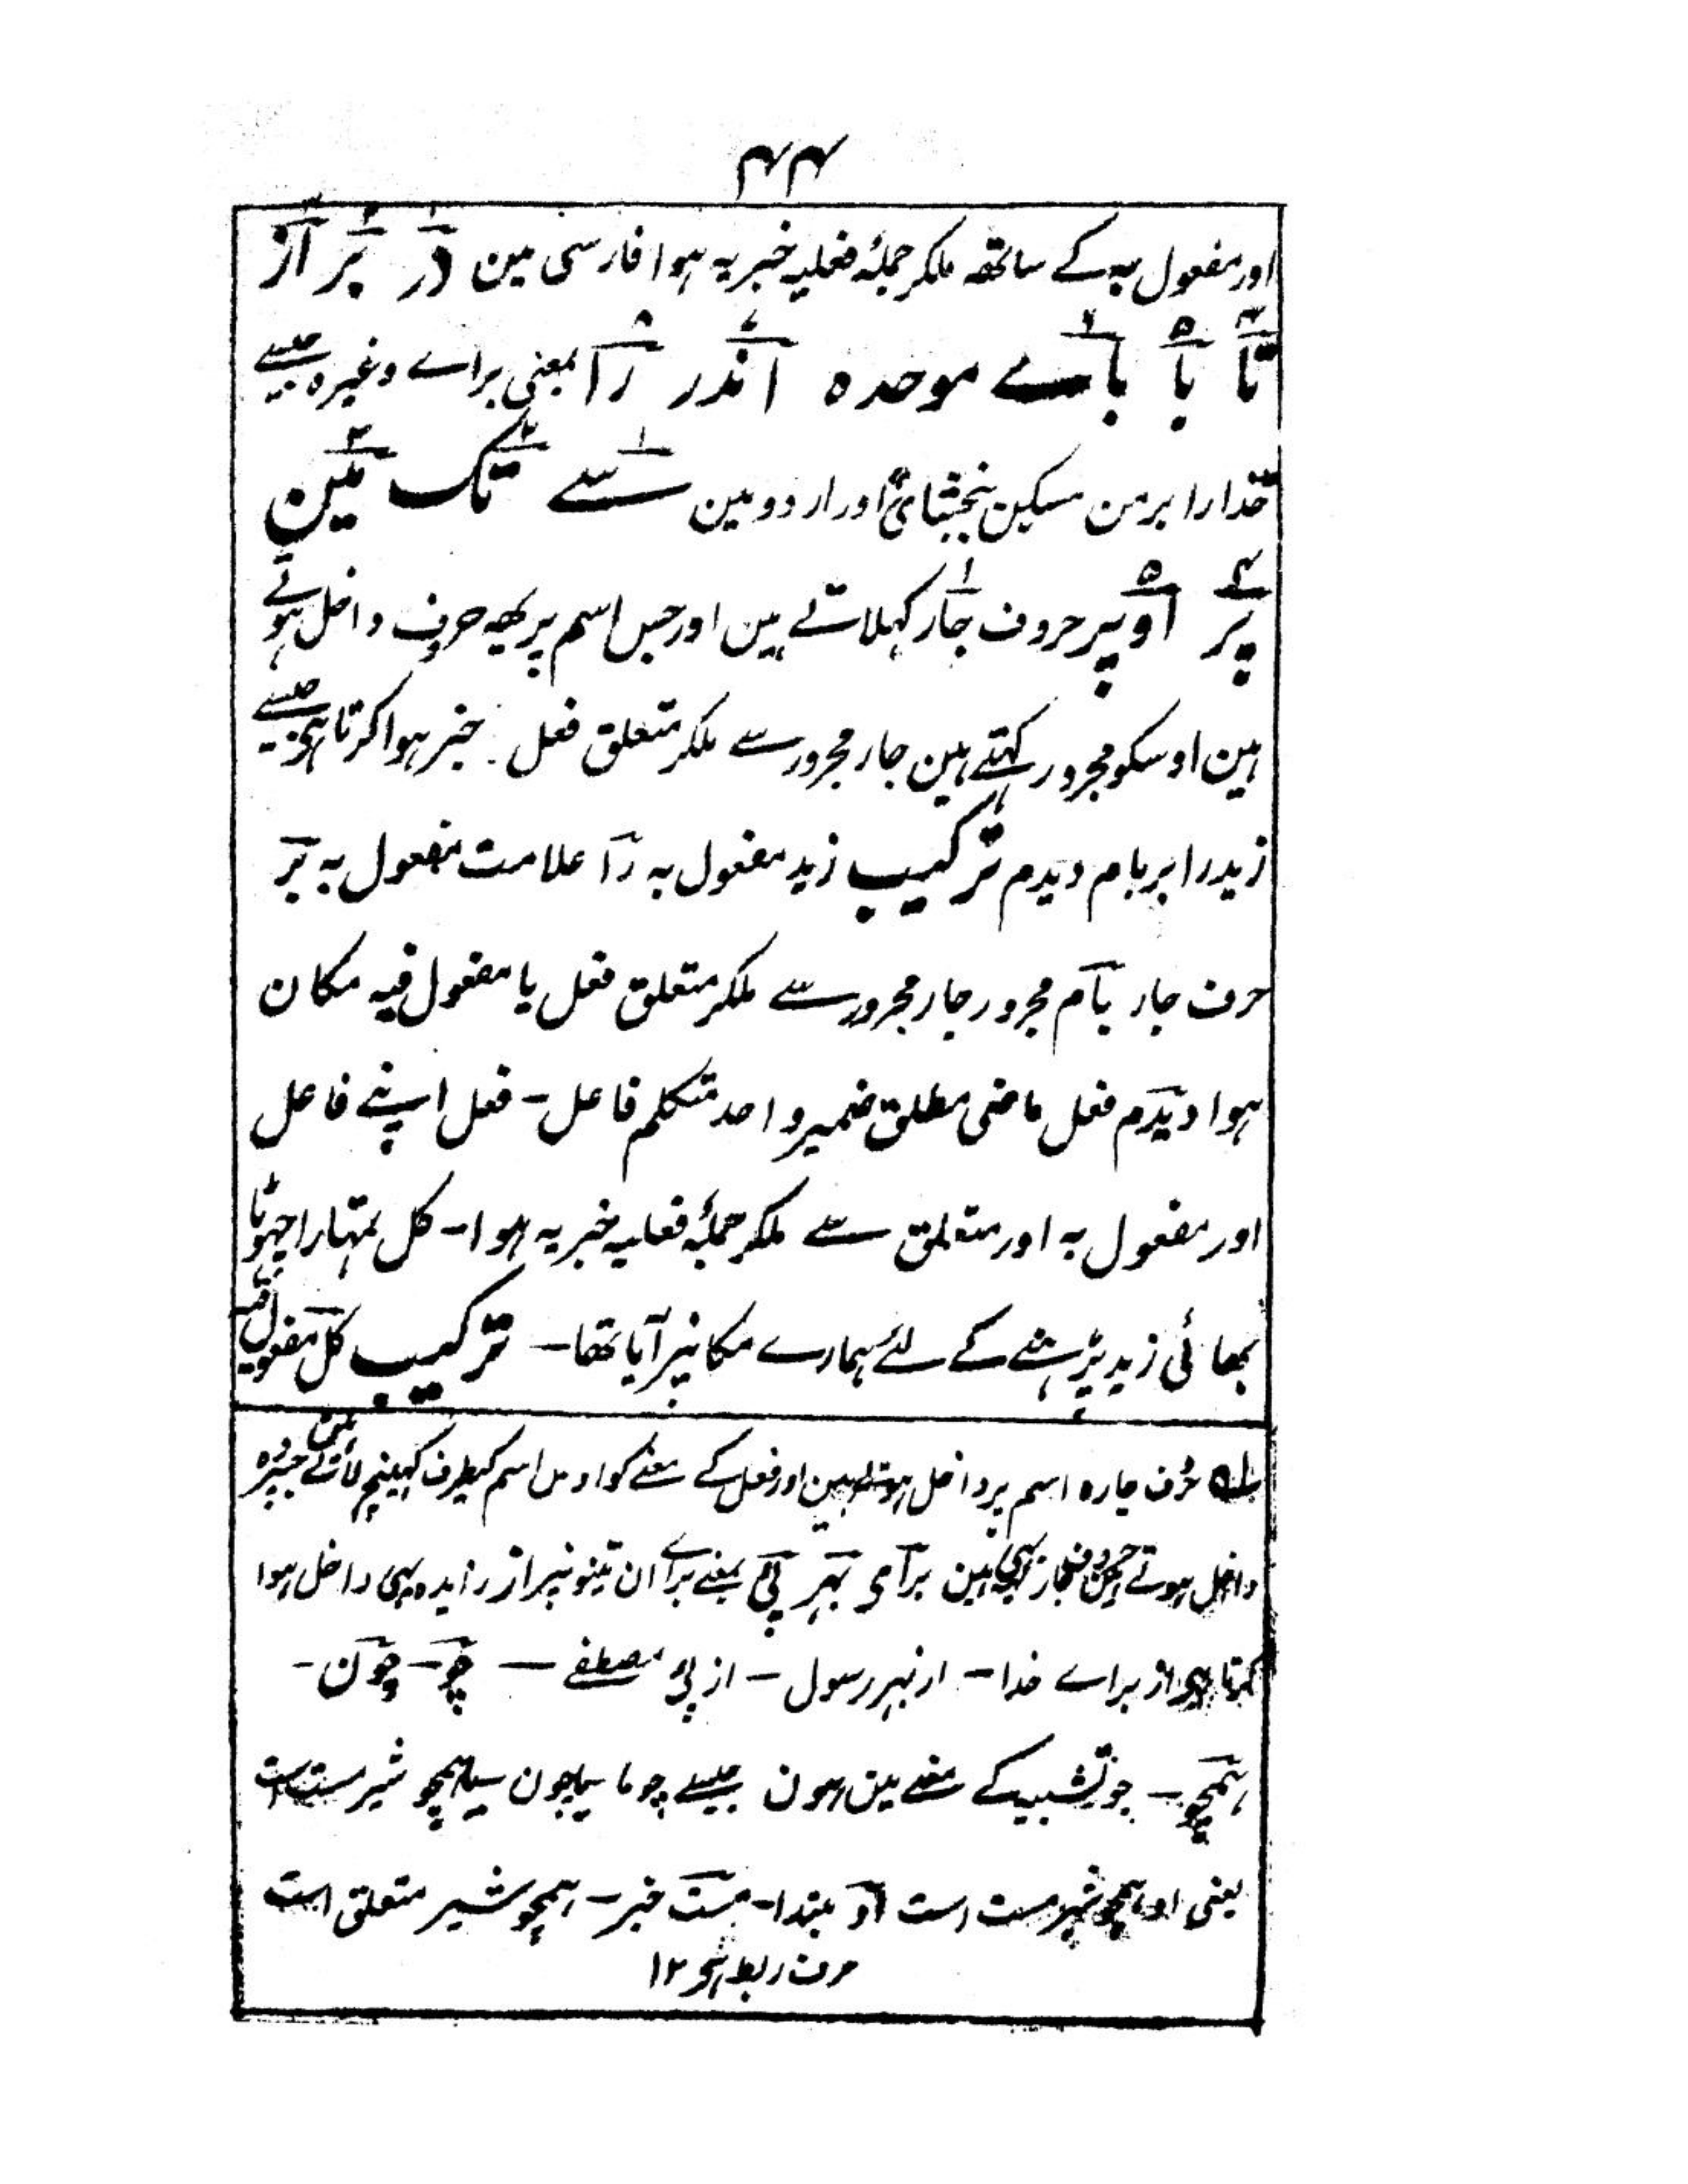 ۴۴
اور مفعول بہ کے ساتھہ ملکر جملۂ فعلیہ خبریہ ہوا فارسی مین در بر از
تا با بائے موحدہ اندر را بمعنی براے وغیرہ جیسے
خدارا برمن مسکین بخشائ اور اردو مین سے تک مین
پر اوپر حروف جار کہلاتے ہین اور جس اسم پر یہہ حروف داخل ہوتے
ہین اوسکو مجرور کہتے ہین جار مجرور سے ملکر متعلق فعل خبر ہوا کرتا ہی جیسے
زید را بربام دیدم ترکیب زید مفعول بہ را علامت مفعول بہ بر
حرف جار بام مجرور جار مجرور سے ملکر متعلق فعل یا مفعول فیہ مکان
ہوا دیدم فعل ماضی مطلق ضمیر واحد متکلم فاعل - فعل اپنے فاعل
اور مفعول بہ اور متعلق سے ملکر جملۂ فعلیہ خبریہ ہوا - کل تمہارا چہوٹا
بھائی زید پڑہنے کے لئے ہمارے مکانپر آیا تھا - ترکیب کل مفعول فیہ
حرف جارہ اسم پر داخل ہوتے ہین اور فعل کے معنے کو اوس اسم کیطرف کہینچ لاتے ہین جسپر وہ
داخل ہوتے ہین براے بہر پئے بمعنے براے ان تینونپر از زایدہ بہی داخل ہوا
کرتا ہی از براے خدا - از بہر رسول - از پئ مصطفے - چو - چون -
ہمچو - جو تشبیہ کے معنے مین ہون جیسے چو ما سیاہچون سیاہمچو شیر مست است
یعنی او ہمچو شیر مست است او مبتدا - مست خبر - ہمچو شیر متعلق است
حرف ربط ہی ۱۲